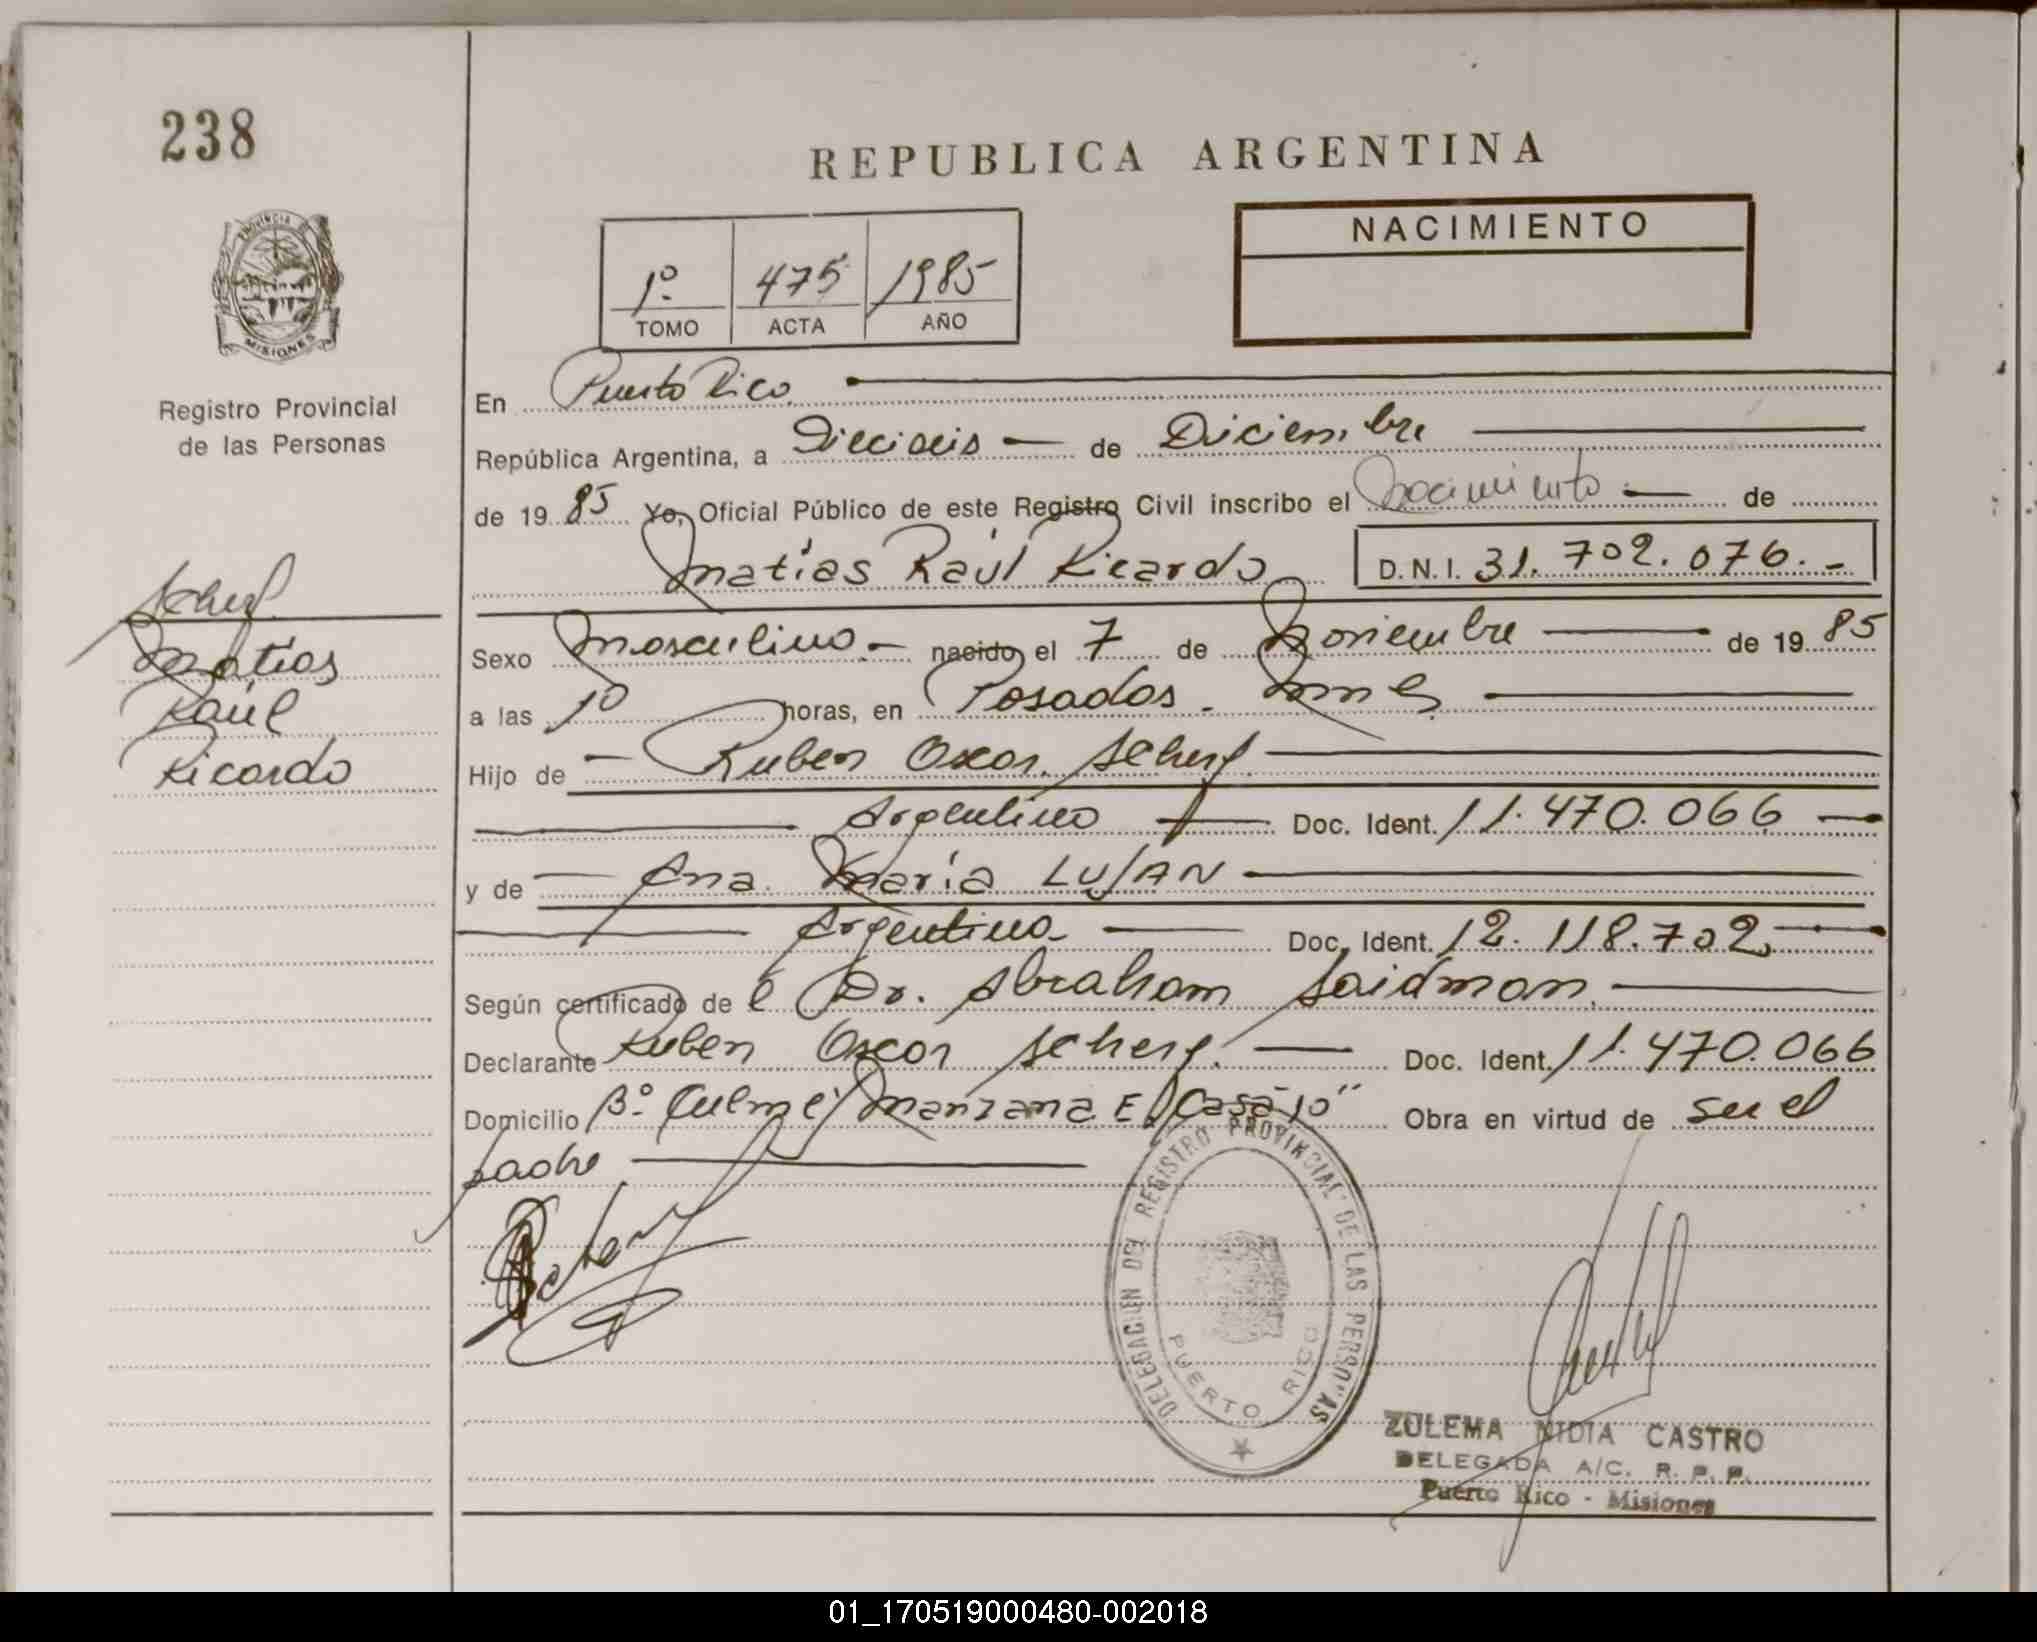 238
REPUBLICA ARGENTINA
NACIMIENTO
1º 475 1985
TOMO ACTA AÑO
PROVINCIA D
MISIONES
Registro Provincial
de las Personas
Scherf
Matías
Raúl
Ricardo
En Puerto Rico
República Argentina, a Dieciseis de Diciembre
de 19 85 Yo, Oficial Público de este Registro Civil inscribo el Nacimiento de
Matías Raúl Ricardo D.N.I. 31.702.076.-
Sexo Masculino.- nacido el 7 de Noviembre de 19 85
a las 10 horas, en Posadas. Mnes
Hijo de Ruben Oscar Scherf
Argentino Doc. Ident. 11.470.066
y de Ana María LUJAN
Argentina Doc. Ident. 12.118.702
Según certificado de l Dr. Abraham Saidman
Declarante Ruben Oscar Scherf. Doc. Ident. 11.470.066
Domicilio Bº Culmey Manzana E "Casa 10" Obra en virtud de ser el
padre
DELEGACIEN DEL REGISTRO PROVINCIAL DE LAS PERSONAS
PUERTO RICO
ZULEMA NIDIA CASTRO
DELEGADA A/C. R. P. P.
Puerto Rico - Misiones
01_170519000480-002018